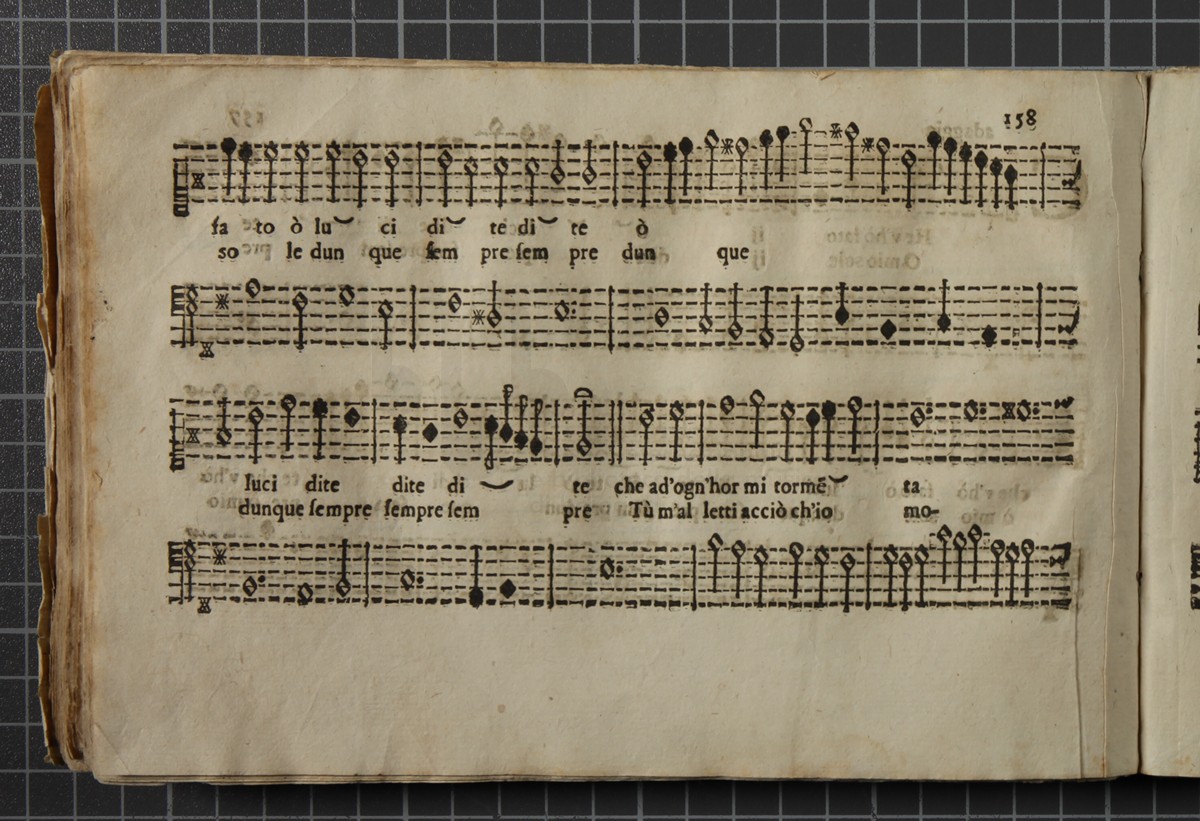 158
fa to ò lu ci di te di te ò
so le dun que sem pre sem pre dun que
luci dite dite di te che ad'ogn'hor mi tormẽ ta
dunque sempre sempre sem pre Tù m'al letti acciò ch'io mo-